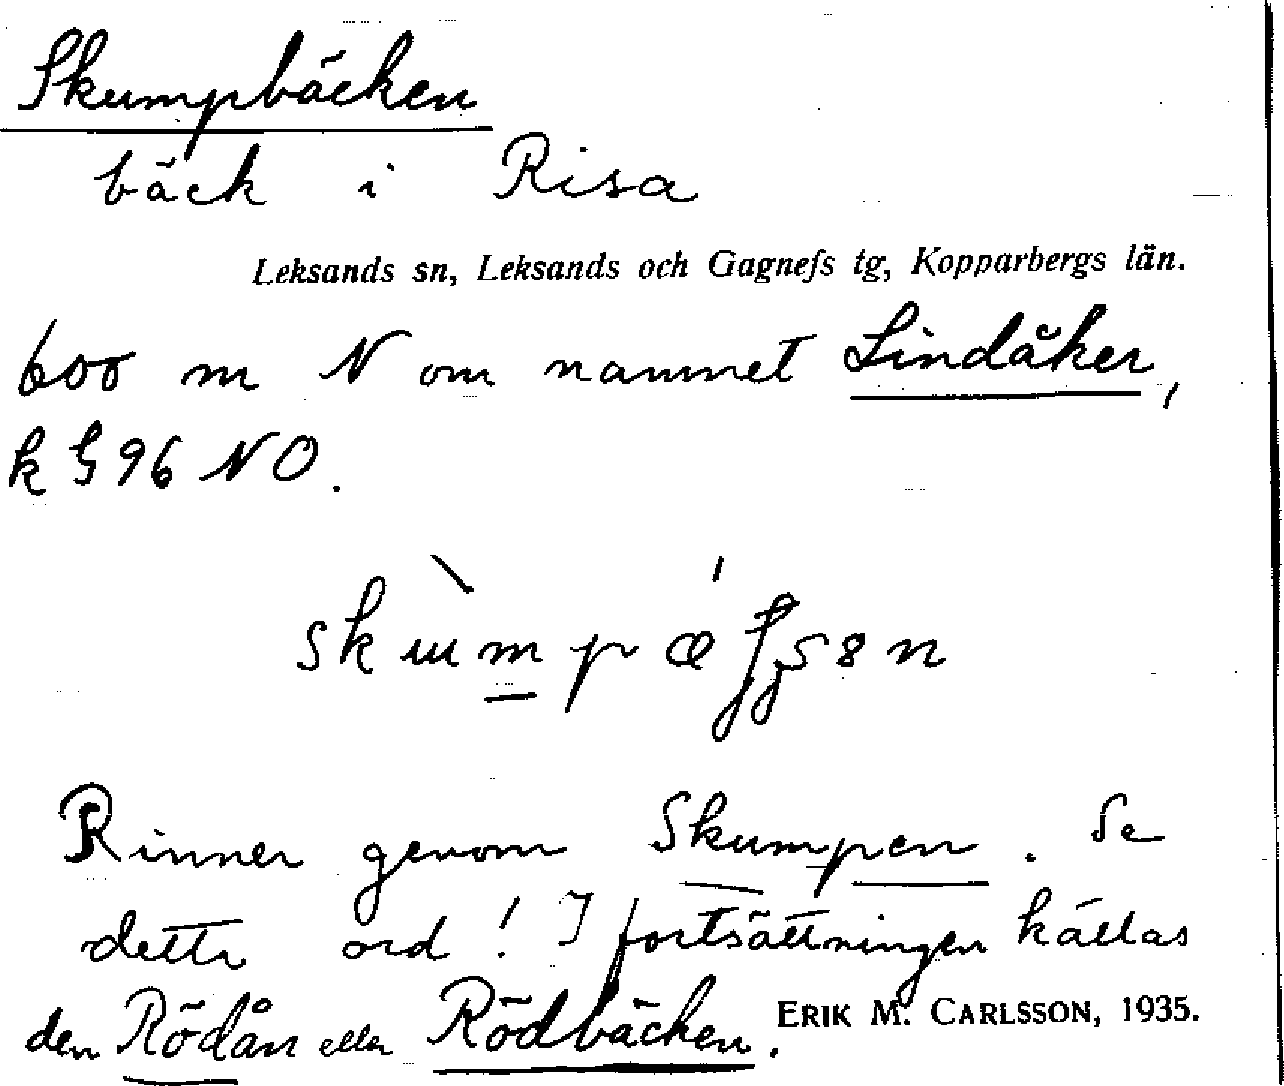 Skumpbäcken
bäck i Risa
Leksands sn, Leksands och Gagnefs tg, Kopparbergs län.
600 m N om namnet Lindåker,
k § 96 NO.
Rinner genom Skumpen. Se
detta ord! I fortsättningen kallas
den Rödån eller Rödbäcken.
ERIK M. CARLSSON, 1935.